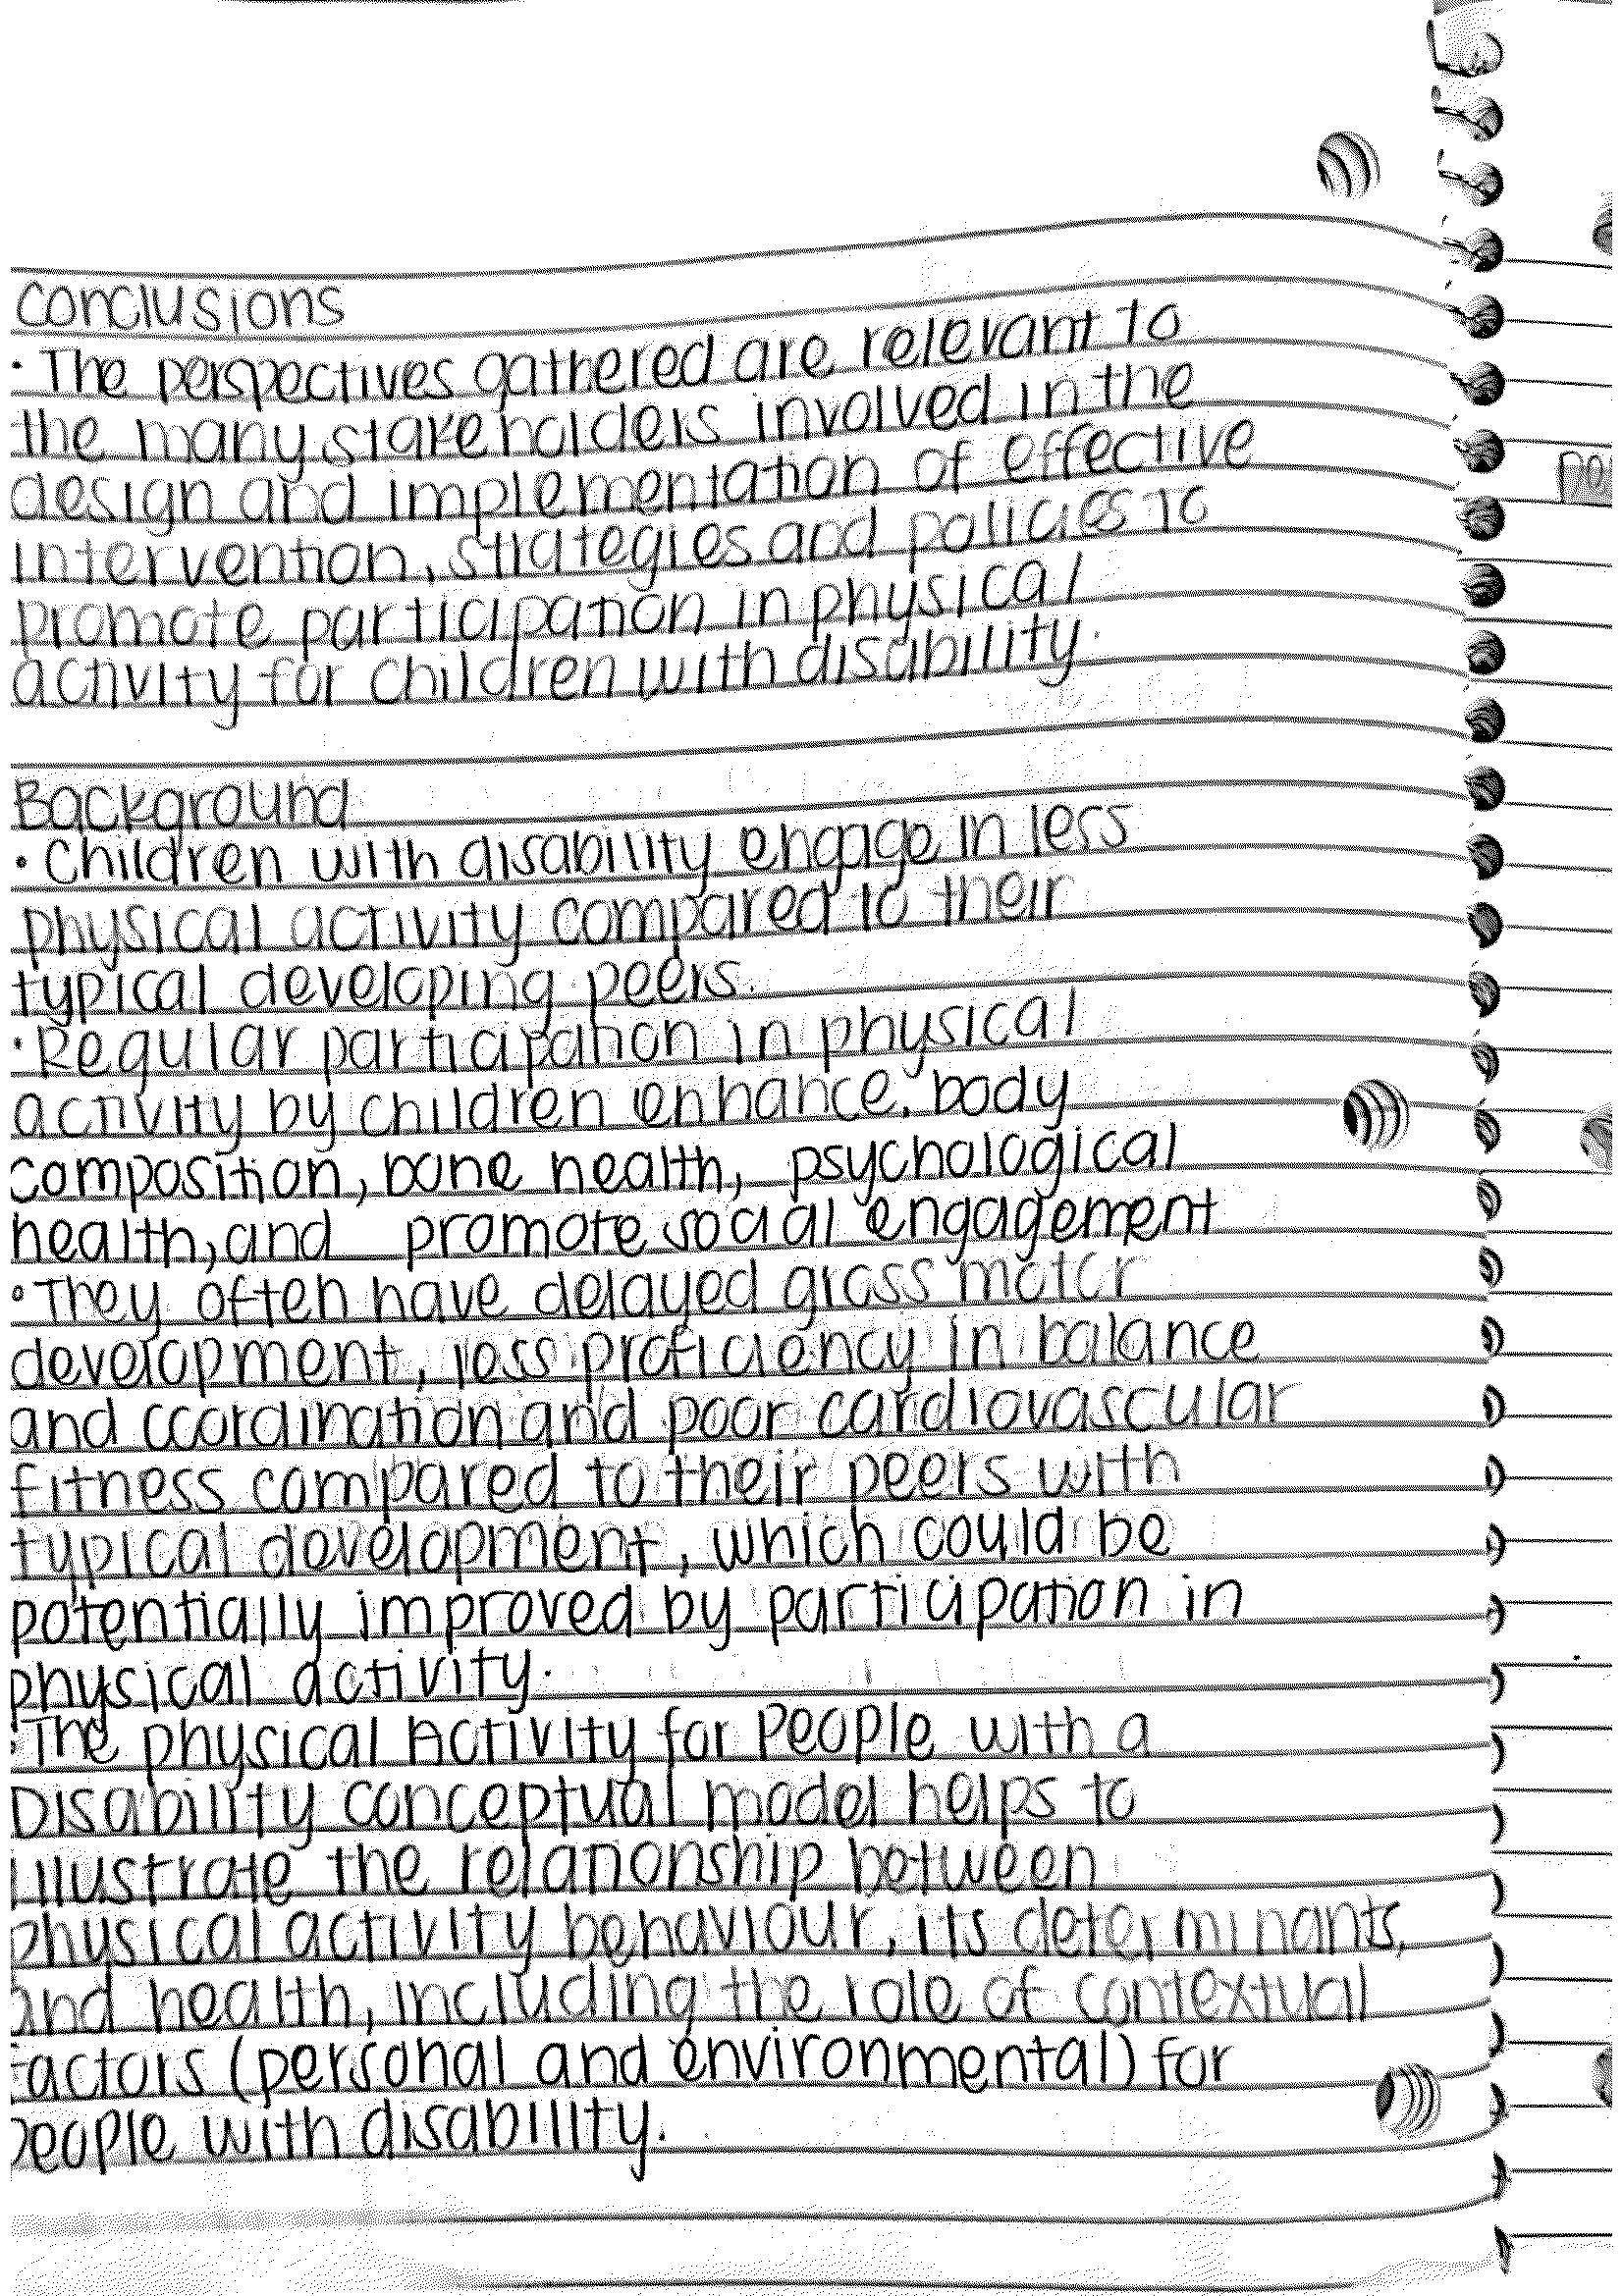 Conclusions
· The perspectives gathered are relevant to
the many stakeholders involved in the
design and implementation of effective
intervention, strategies and policies to
promote participation in physical
activity for children with disability.
Background
· Children with disability engage in less
physical activity compared to their
typical developing peers.
· Regular participation in physical
activity by children enhance, body
composition, bone health, psychological
health, and promote social engagement
· They often have delayed gross motor
development, less proficiency in balance
and coordination and poor cardiovascular
fitness compared to their peers with
typical development, which could be
potentially improved by participation in
physical activity.
· The physical Activity for People with a
Disability conceptual model helps to
illustrate the relationship between
physical activity behaviour, its determinants,
and health, including the role of contextual
factors (personal and environmental) for
people with disability.